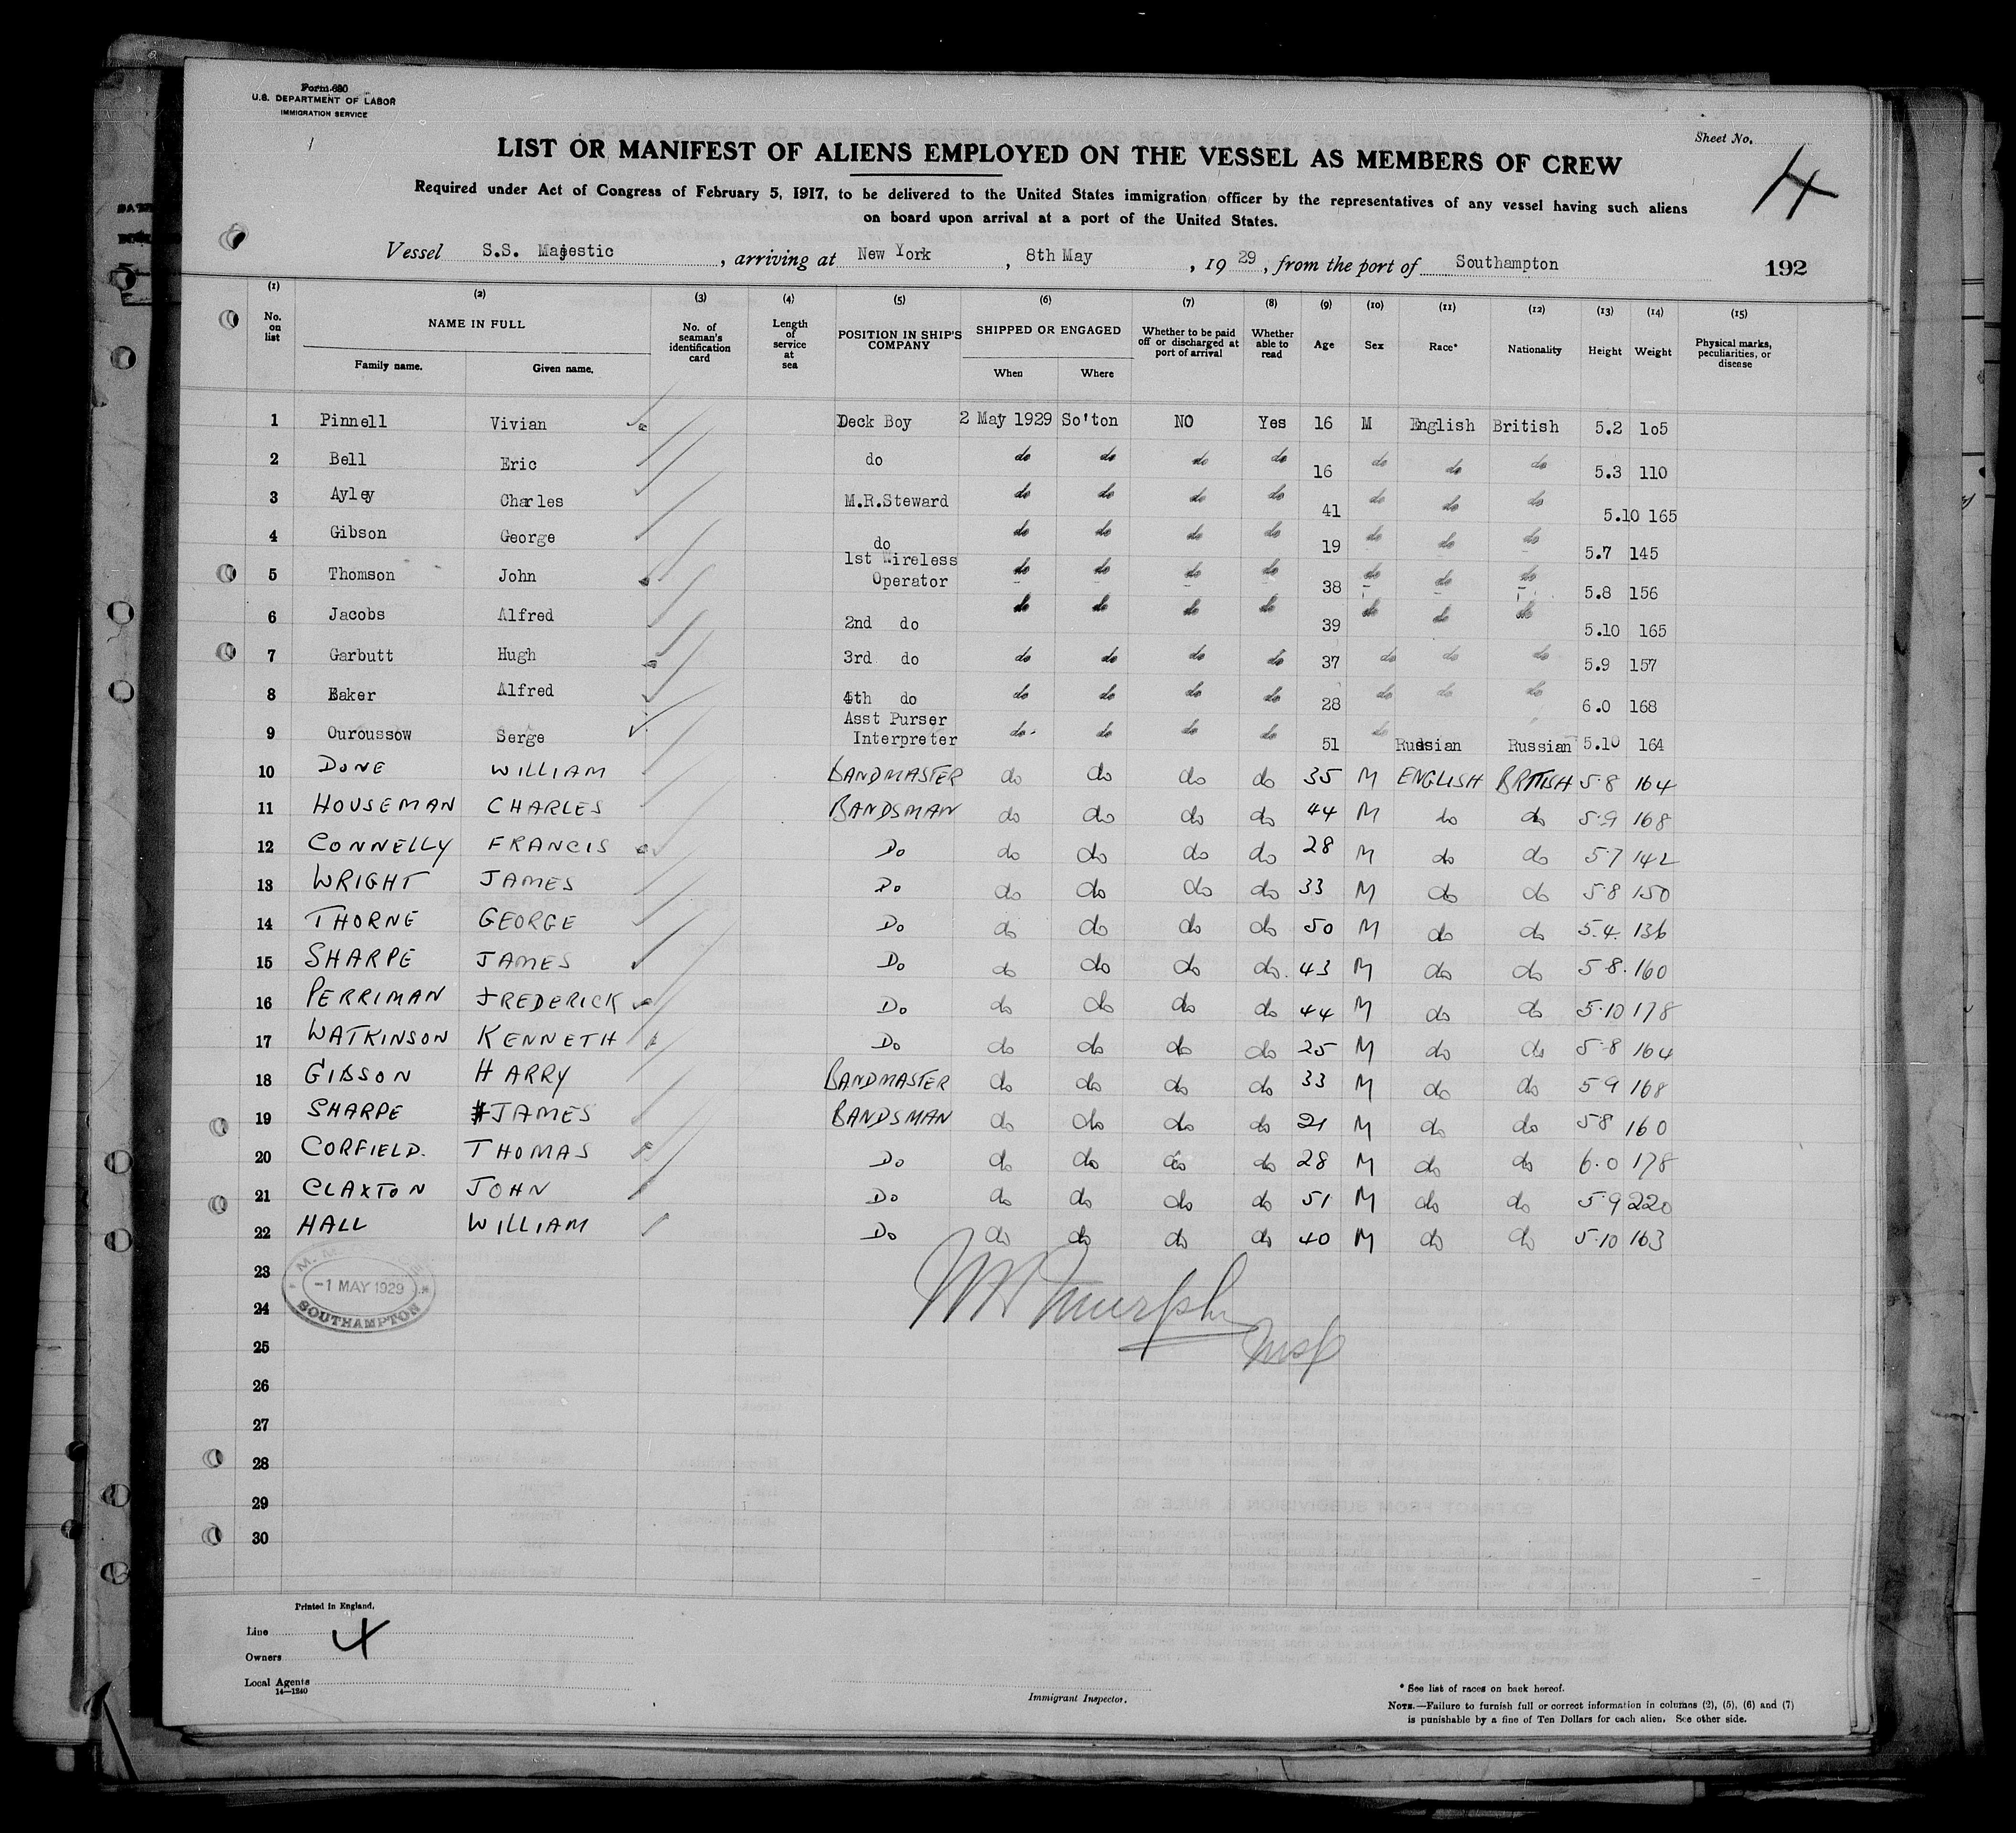 Form 680
U.S. DEPARTMENT OF LABOR
IMMIGRATION SERVICE
Sheet No.
4
LIST OR MANIFEST OF ALIENS EMPLOYED ON THE VESSEL AS MEMBERS OF CREW
Required under Act of Congress of February 5, 1917, to be delivered to the United States immigration officer by the representatives of any vessel having such aliens
on board upon arrival at a port of the United States.
Vessel S.S. Majestic, arriving at New York, 8th May, 1929, from the port of Southampton 192
(1) (2) (3) (4) (5) (6) (7) (8) (9) (10) (11) (12) (13) (14) (15)
No. on list NAME IN FULL Family name. Given name. No. of seaman's identification card Length of service at sea POSITION IN SHIP'S COMPANY SHIPPED OR ENGAGED When Where Whether to be paid off or discharged at port of arrival Whether able to read Age Sex Race* Nationality Height Weight Physical marks, peculiarities, or disease
1 Pinnell Vivian Deck Boy 2 May 1929 So'ton NO Yes 16 M English British 5.2 105
2 Bell Eric do do do do do 16 do do do 5.3 110
3 Ayley Charles M.R.Steward do do do do 41 do do do 5.10 165
4 Gibson George do do do do do 19 do do do 5.7 145
5 Thomson John 1st Wireless Operator do do do do 38 do do do 5.8 156
6 Jacobs Alfred 2nd do do do do do 39 do do do 5.10 165
7 Garbutt Hugh 3rd do do do do do 37 do do do 5.9 157
8 Baker Alfred 4th do do do do do 28 do do do 6.0 168
9 Ouroussow Serge Asst Purser Interpreter do do do do 51 do Russian Russian 5.10 164
10 DONE WILLIAM BANDMASTER do do do do 35 M ENGLISH BRITISH 5.8 164
11 HOUSEMAN CHARLES BANDSMAN do do do do 44 M do do 5.9 168
12 CONNELLY FRANCIS Do do do do do 28 M do do 5.7 142
13 WRIGHT JAMES Do do do do do 33 M do do 5.8 150
14 THORNE GEORGE Do do do do do 50 M do do 5.4. 136
15 SHARPE JAMES Do do do do do. 43 M do do 5.8. 160
16 PERRIMAN FREDERICK Do do do do do 44 M do do 5.10 178
17 WATKINSON KENNETH Do do do do do 25 M do do 5.8 164
18 GIBSON HARRY BANDMASTER do do do do 33 M do do 5 9 168
19 SHARPE JAMES BANDSMAN do do do do 21 M do do 5 8 160
20 CORFIELD. THOMAS Do do do do do 28 M do do 6.0 178
21 CLAXTON JOHN Do do do do do 51 M do do 5.9 220
22 HALL WILLIAM Do do do do do 40 M do do 5.10 163
23
24
25
26
27
28
29
30
-1 MAY 1929
SOUTHAMPTON
Murphy
Insp
Printed in England.
Line
4
Owners
Local Agents
14—1240
Immigrant Inspector.
* See list of races on back hereof.
NOTE.—Failure to furnish full or correct information in columns (2), (5), (6) and (7)
is punishable by a fine of Ten Dollars for each alien. See other side.